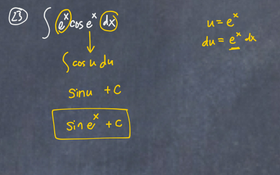 23 ∫ e^x cos e^x dx
u = e^x
du = e^x dx
∫ cos u du
sin u + C
sin e^x + C